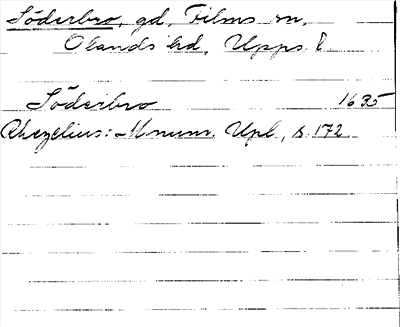 Söderbro, gd, Films sn,
Olands hd, Upps. l.
Söderbro 1635
Rhezelius: Monum. Upl, s. 172